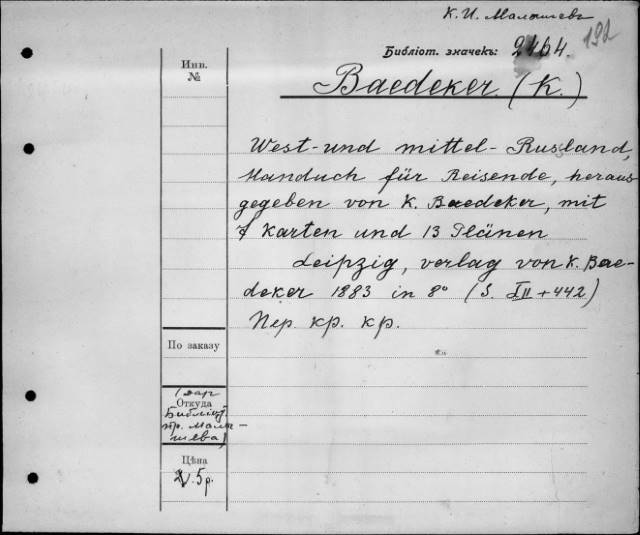 К. И. Малышевъ
192
Библіот. значекъ: 2464.
Baedeker. (K.)
Инв.
№
West- und mittel- Rusland,
Handuch für Reisende, heraus
gegeben von K. Baedeker, mit
7 Karten und 13 Plänen
Leipzig, verlag von K. Bae-
deker 1883 in 8° (S. LII + 442)
Пер. кр. кр.
По заказу
Откуда
тр. Малы-
шева)
Цѣна
5 р.